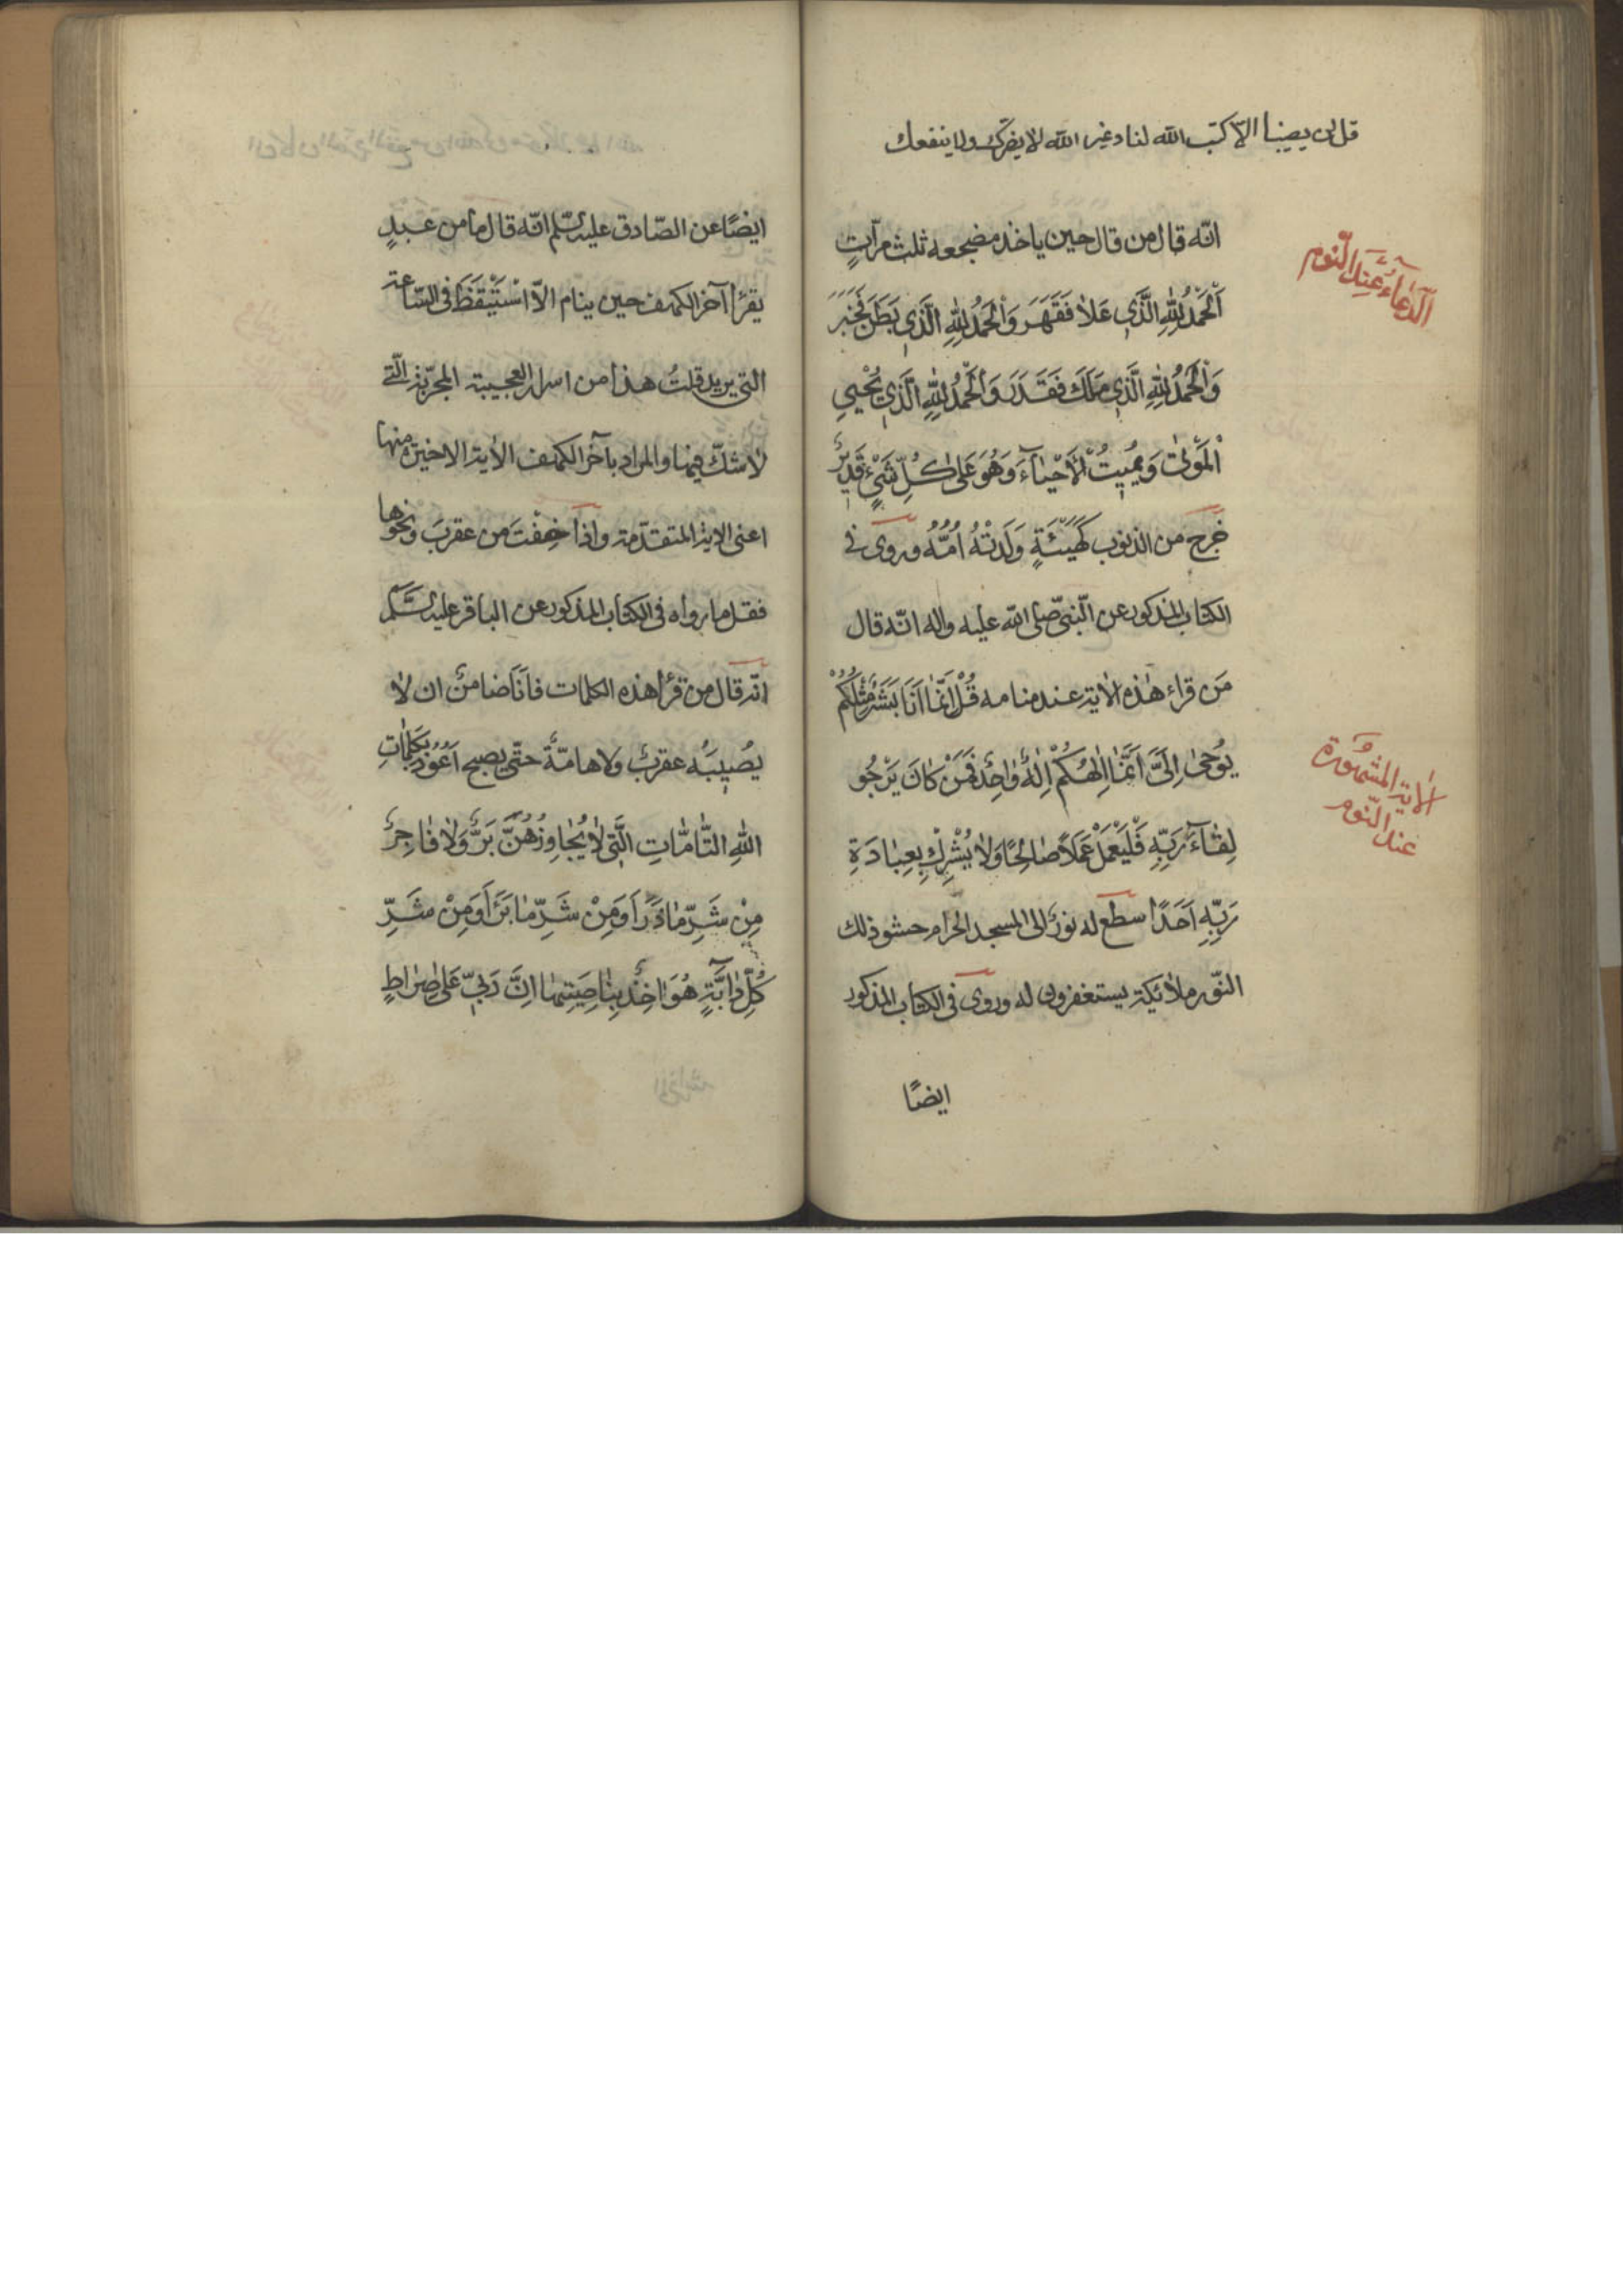 قل لن يصيبنا الّا كتب الله لنا وغير الله لا يضرّك ولا ينفعك
انّه قال من قال حين ياخذ مضجعه ثلث مرّاتٍ
الدّعاءُ عند النّوم
اَلْحَمْدُ لِلّٰهِ الَّذي عَلاٰ فَقَهَرَ وَالْحَمْدُ لِلّٰهِ الَّذي بَطَنَ فَخَبَرَ
وَالْحَمْدُ لِلّٰهِ الَّذي مَلَكَ فَقَدَرَ وَالْحَمْدُ لِلّٰهِ الَّذي يُحْيِي
الْمَوْتٰى وَيُميتُ الْاَحْيٰاۤءَ وَهُوَ عَلىٰ كُلِّ شَيْءٍ قَديرٌ
خَرَجَ من الذنوب كَهَيْئَةِ وَلَدَتْهُ اُمُّهُ وروى في
الكتاب المذكور عن النّبىّ صلى الله عليه واله انّه قال
مَن قراء هٰذه الاٰية عند منامه قُلْ اِنَّمٰا اَنَا بَشَرٌ مِثْلُكُمْ
يُوحىٰ اِلَىَّ اَنَّمٰا اِلٰهُكُمْ اِلٰهٌ وٰاحِدٌ فَمَنْ كٰانَ يَرْجُو
الاٰية المشهورة
عند النّوم
لِقٰاۤءَ رَبِّهِ فَلْيَعْمَلْ عَمَلاً صٰالِحًا وَلاٰ يُشْرِكْ بِعِبٰادَةِ
رَبِّهِ اَحَدًا سطع له نورٌ الى المسجد الحرام حشو ذلك
النّور ملائكة يستغفرون له وروى فى الكتاب المذكور
ايضًا
ايضًا عن الصّادق عليه السّلم انّه قال ما من عبدٍ
يقرأ آخر الكهف حين ينام الّا اسْتَيْقَظَ فى السّاعة
التى يريد قلتُ هذا من اسرار العجيبة المجرّبة الّتى
لاشكّ فيها والمراد بآخر الكهف الاٰية الاخيرة منها
اعنى الاية المتقدّمة واذا خِفْتَ من عقربَ ونحوها
فقل ما رواه فى الكتاب المذكور عن الباقر عليه السَّلَم
انّه قال من قرأ هذه الكلمات فاَنَا ضامنٌ ان لاٰ
يُصيبَه عقربٌ ولا هامّةٌ حتّى يصبح اَعُوذُ بِكَلِمٰاتِ
اللّٰهِ التّٰامّٰاتِ الَّتى لاٰ يُجٰاوِزُهُنَّ بَرٌّ وَلاٰ فٰاجِرٌ
مِنْ شَرِّ مٰا ذَرَاَ وَمِنْ شَرِّ مٰا بَرَاَ وَمِنْ شَرِّ
كُلِّ دٰابَّةٍ هُوَ اٰخِذٌ بِنٰاصِيَتِهٰا اِنَّ رَبّي عَلىٰ صِرٰاطٍ